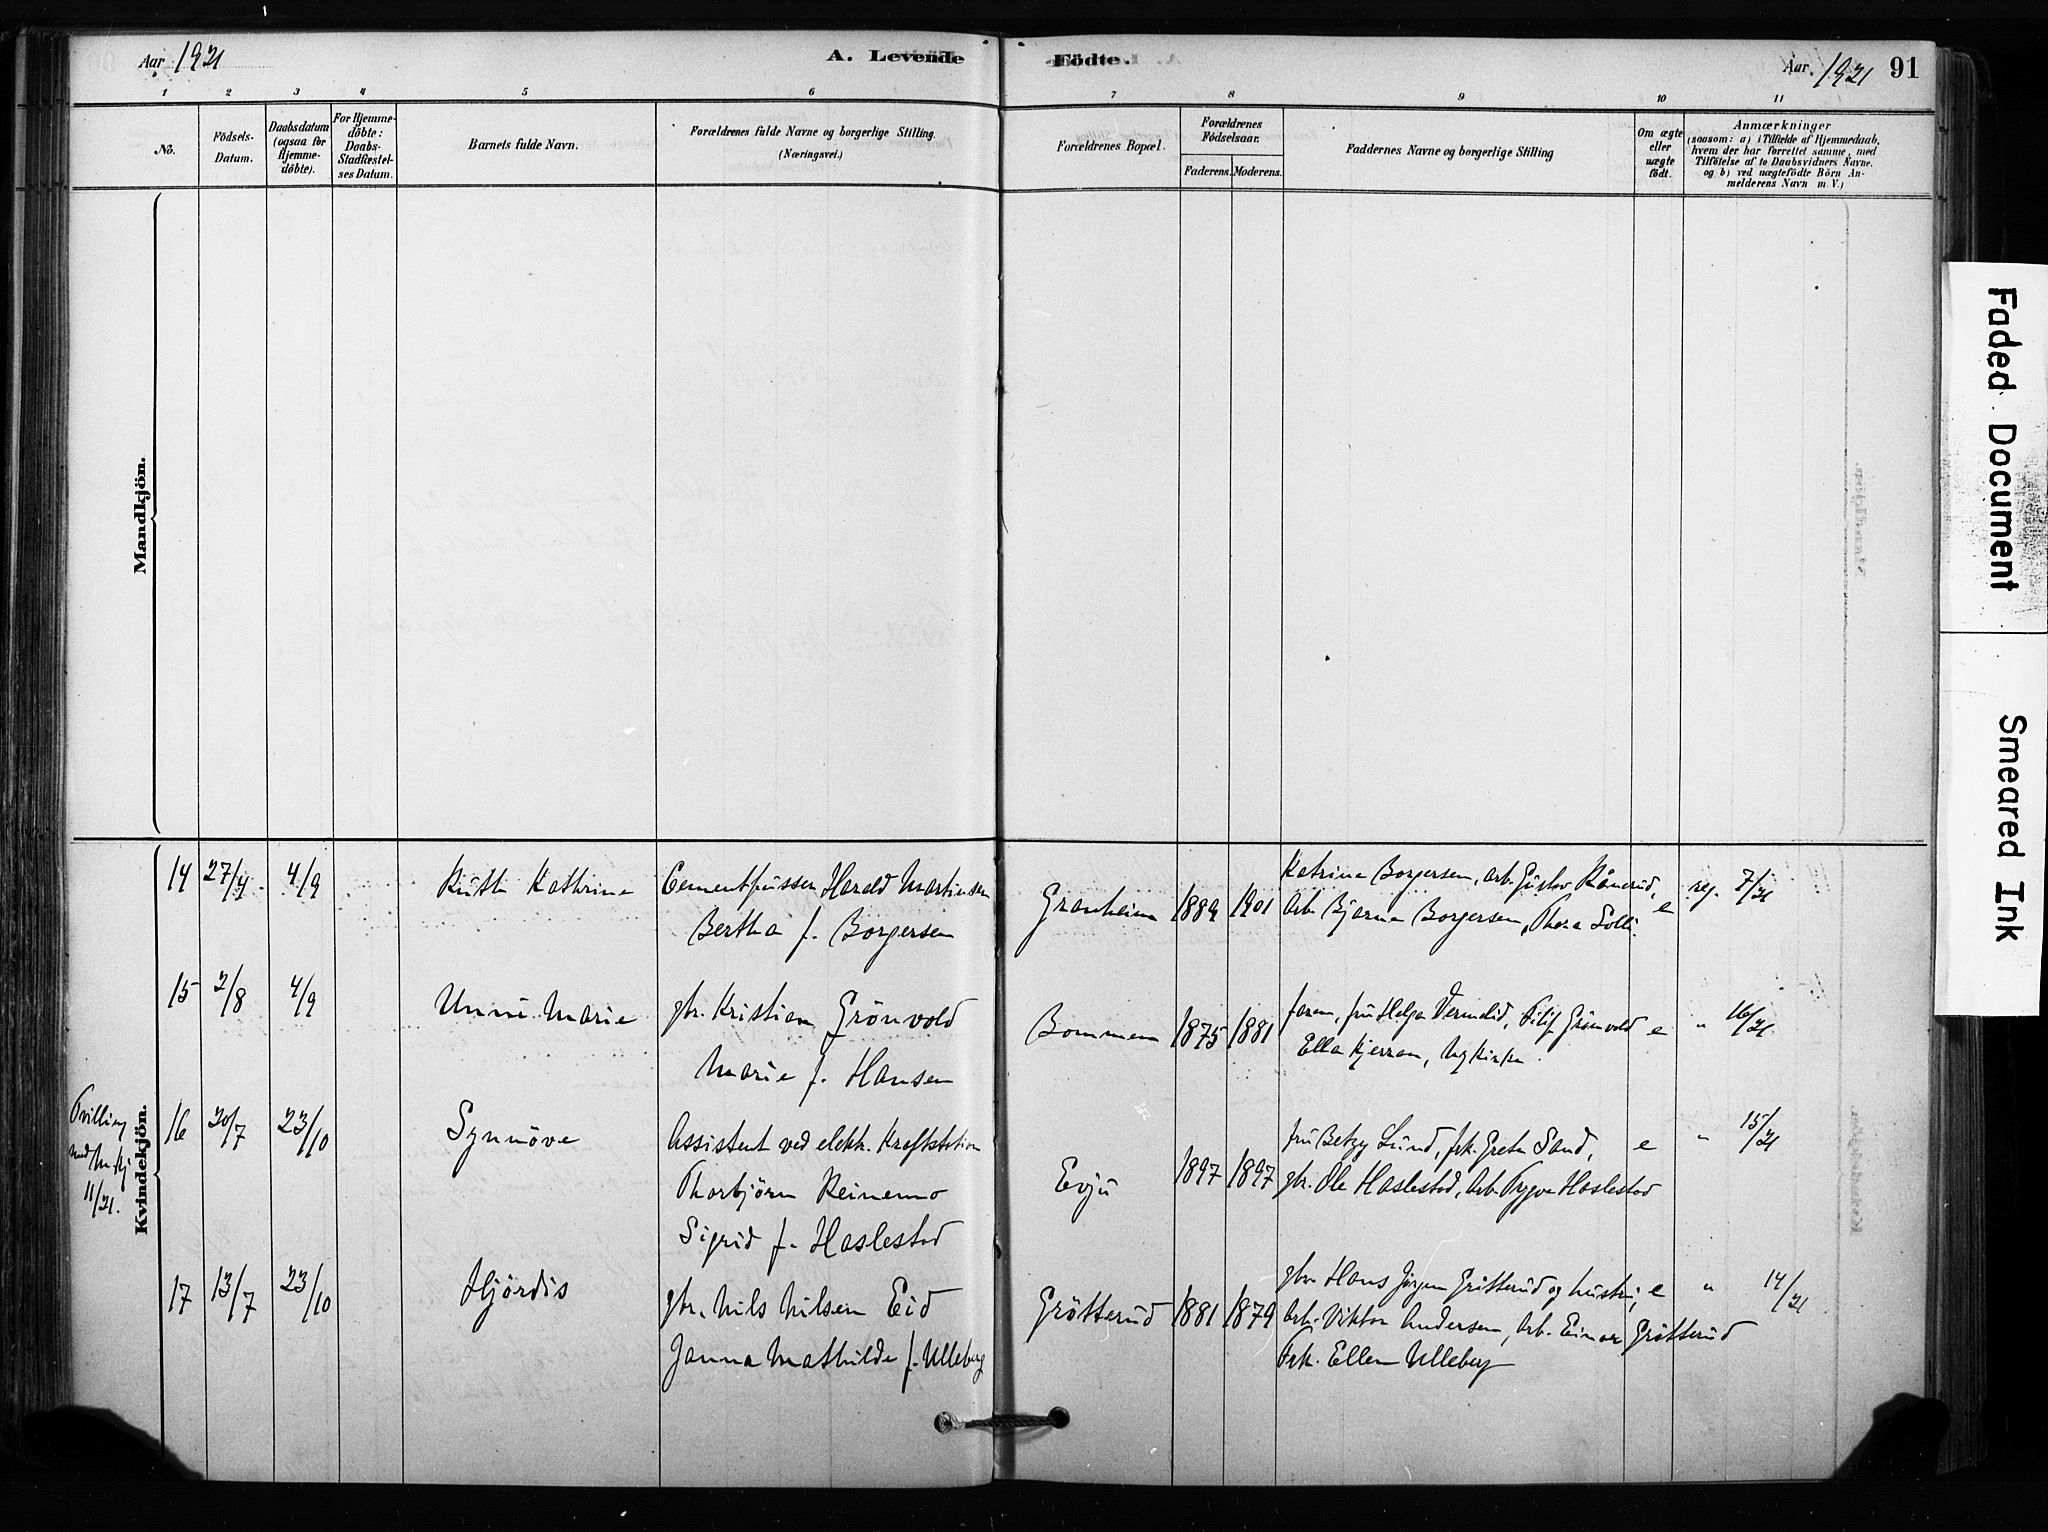 Aar 1921
A. Levende
Födte.
Aar 1921
91
1 2 3 4 5 6 7 8 9 10 11
No.
Födsels-
Datum.
Daabsdatum
(ogsaa for
Hjemme-
döbte).
For Hjemme-
döbte:
Daabs-
Stadfæstel-
ses Datum.
Barnets fulde Navn.
Forældrenes fulde Navne og borgerlige Stilling.
(Næringsvei.)
Forældrenes Bopæl.
Forældrenes
Födselsaar.
Faderens. Moderens.
Faddernes Navne og borgerlige Stilling
Om ægte
eller
uægte
födt.
Anmærkninger
(saasom: a) i Tilfælde af Hjemmedaab,
hvem der har forrettet samme, med
Tilföielse af to Daabsvidners Navne,
og b) ved uægtefödte Börn An-
melderens Navn m. V.)
Mandkjön.
Kvindekjön.
14 27/4 4/9 Ruth Kathrine Cementpusser Harald Martinsen
Bertha f. Borgersen
Granheim 1889 1901
Katrine Borgersen, arb. Gustav Rånerud,
Arb. Bjarne Borgersen, Thora Solli.
e reg. 7/21
15 2/8 4/9 Unni Marie gbr. Kristian Grönvold
Marie f. Hansen
Bommen 1875 1881
faren, fru Helga Vermelid, Filip Grönvold
Ella Kjerran, Nykirke.
e " 16/21
Tvilling
med M.kj
11/21.
16 20/7 23/10 Synnöve Assistent ved elektr. Kraftstation
Thorbjörn Reinemo
Sigrid f. Haslestad
Evju 1897 1897
fru Betzy Lund, frk. Grete Sand,
gbr. Ole Haslestad, Arb. Trygve Haslestad
e " 15/21
17 13/7 23/10 Hjördis gbr. Nils Nilsen Eid
Janna Mathilde f. Ulleberg
Grötterud 1881 1879
gbr. Hans Jörgen Grötterud og hustru,
Arb. Viktor Andersen, Arb. Einar Grötterud
Frk. Ellen Ulleberg
e " 14/21
Faded Document
Smeared Ink